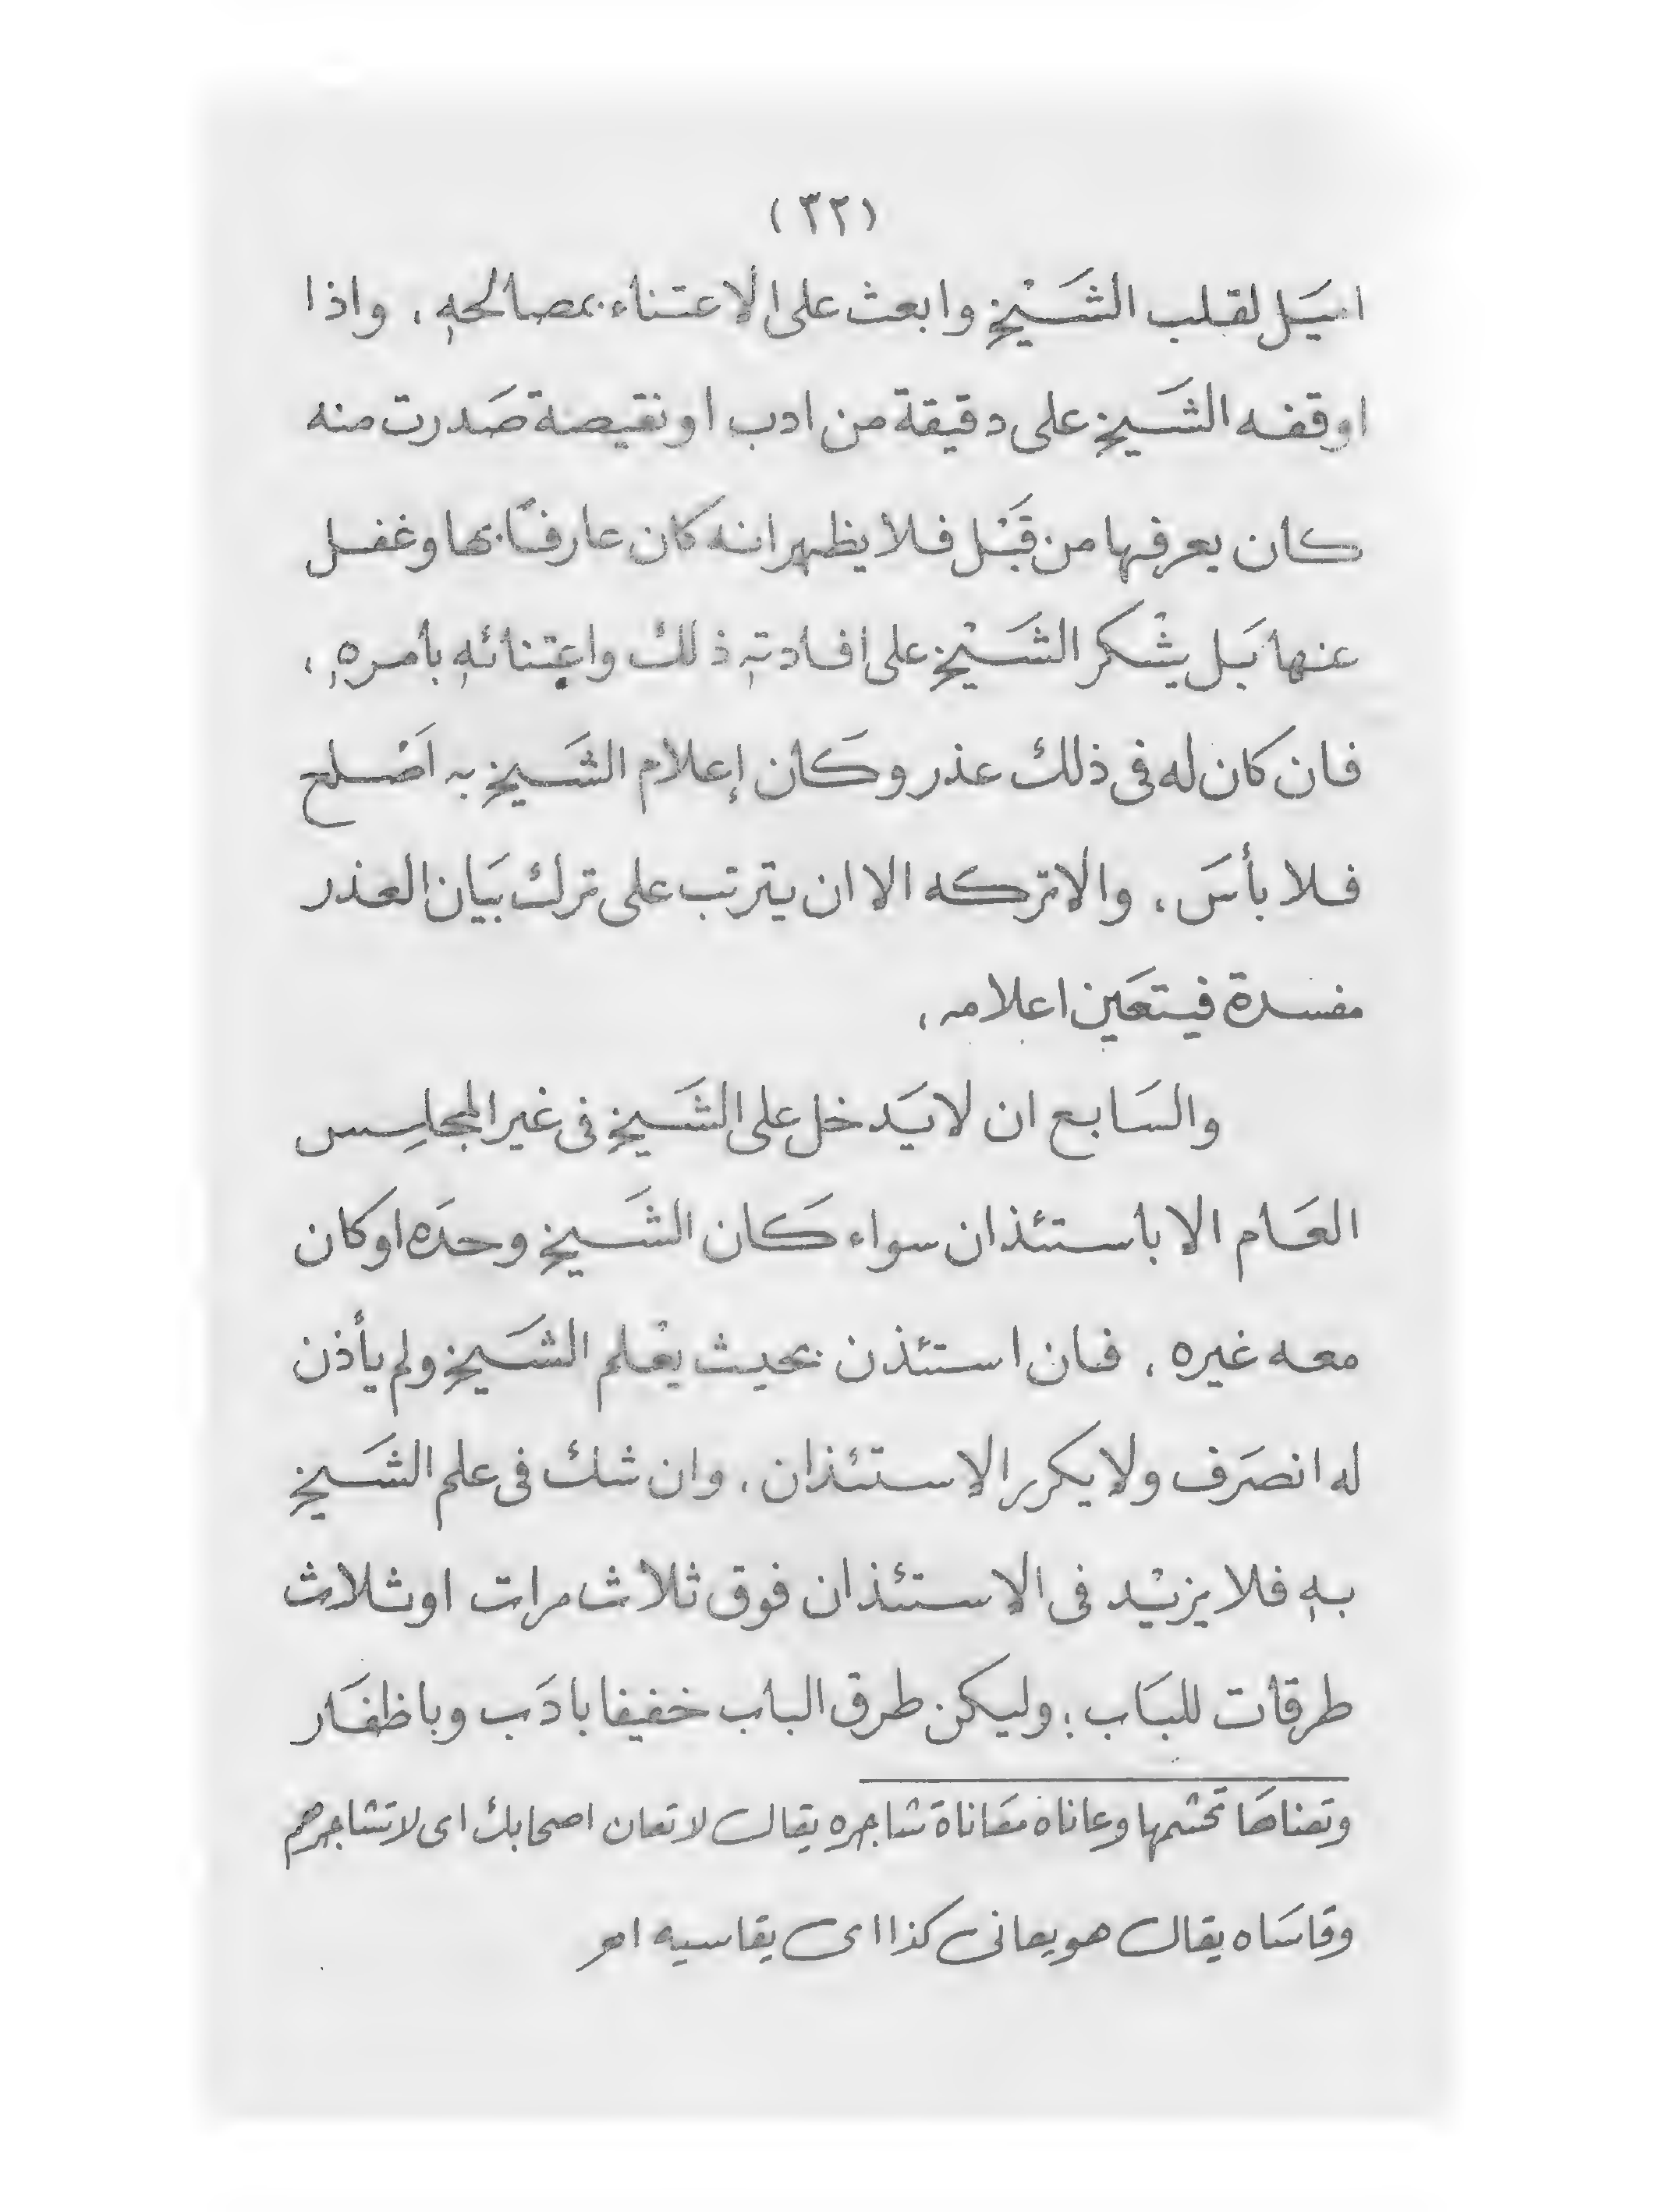 (٣٢)
اميَل لقلب الشَيْخ وابعث على الاعتناء بمصالحهِ، واذا
اوقفه الشَيخ على دقيقة من ادب او نقيصة صَدرت منه
كان يعرفها من قَبْل فلا يظهر انه كان عارفًا بها وغفل
عنها بَل يشْكر الشَيْخ على افادتهِ ذلك واعتنائهِ بامرهِ،
فان كان له فى ذلك عذر وكَان إعلام الشَيخ به اَصْلح
فلا بأسَ، والا تركه الا ان يترتب على ترك بيَان العذر
مفسدة فيتعَين اعلامه،
والسَابع ان لا يَدخل على الشَيخ فى غير المجلِس
العَام الا باستئذان سواء كَان الشَيخ وحدَه او كان
معه غيره، فان استئذن بحيث يعْلم الشَيخ ولم يأذن
له انصرَف ولا يكرر الاستئذان، وان شك فى علم الشَيخ
بهِ فلا يزيْد فى الاستئذان فوق ثلاث مرات او ثلاث
طرقات للبَاب؛ وليكن طرق الباب خفيفا بادَب وباظفَار
وتعناهَا تجشمها وعاناه معَاناة شاجره يقال لا تعان اصحابك اى لا تشاجرهم
وقاسَاه يقال هو يعانى كذا اى يقاسيه اهر